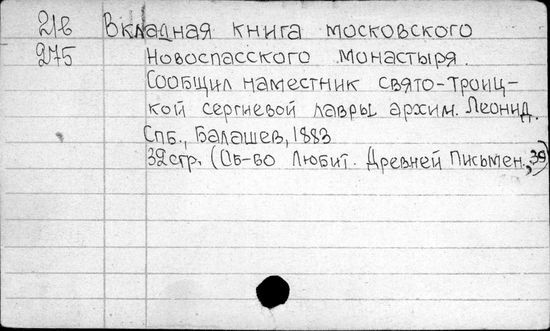 21в Вкладная книга московского
275 Новоспасского монастыря.
Сообщил наместник свято-троиц-
кой сергиевой лавры архим. Леонид.
Спб., Балашев, 1883
32стр. (Об-во Любит. Древней Письмен., 39)